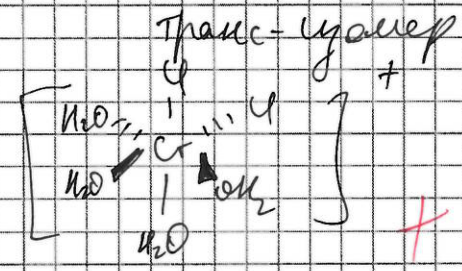 Транс-изомер
Cl +
H₂O Cl
Cr
H₂O OH₂
H₂O